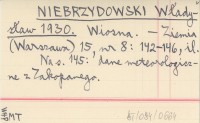 NIEBRZYDOWSKI Włady-
sław 1930. Wiosna. – Ziemia
(Warszawa) 15, nr 8: 142-146, il.
Na s. 145: dane meteorologicz-
ne z Zakopanego.
MT